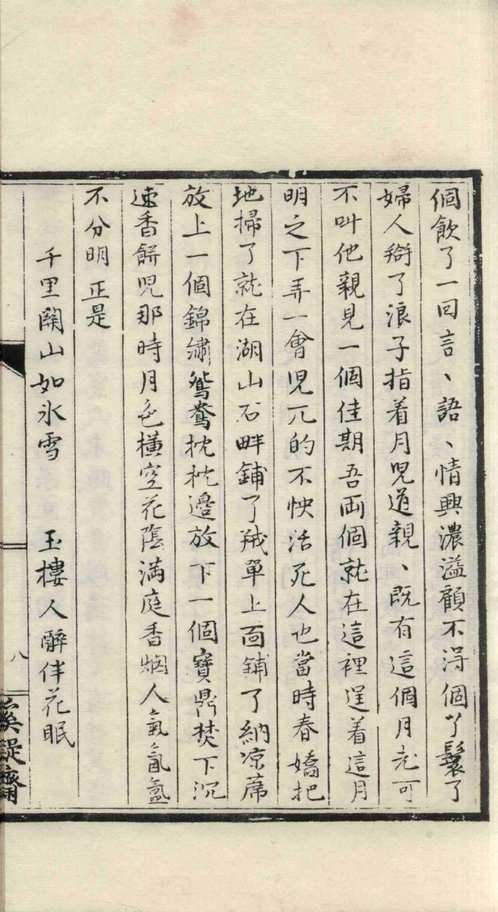 個飲了一回言、語、情興濃溢顧不得個丫鬟了
婦人搿了浪子指着月兒道親、既有這個月光可
不叫他親見一個佳期吾両個就在這裡逞着這月
明之下弄一會兒兀的不怏活死人也當時春嬌把
地掃了就在湖山石畔鋪了羢單上面鋪了納凉蓆
放上一個錦繡鴛鴦枕枕邊放下一個寶鼎焚下沉
速香餅兒那時月色橫空花蔭滿庭香烟人氣氤氳
不分明正是
千里関山如氷雪　玉樓人醉伴花眠
八